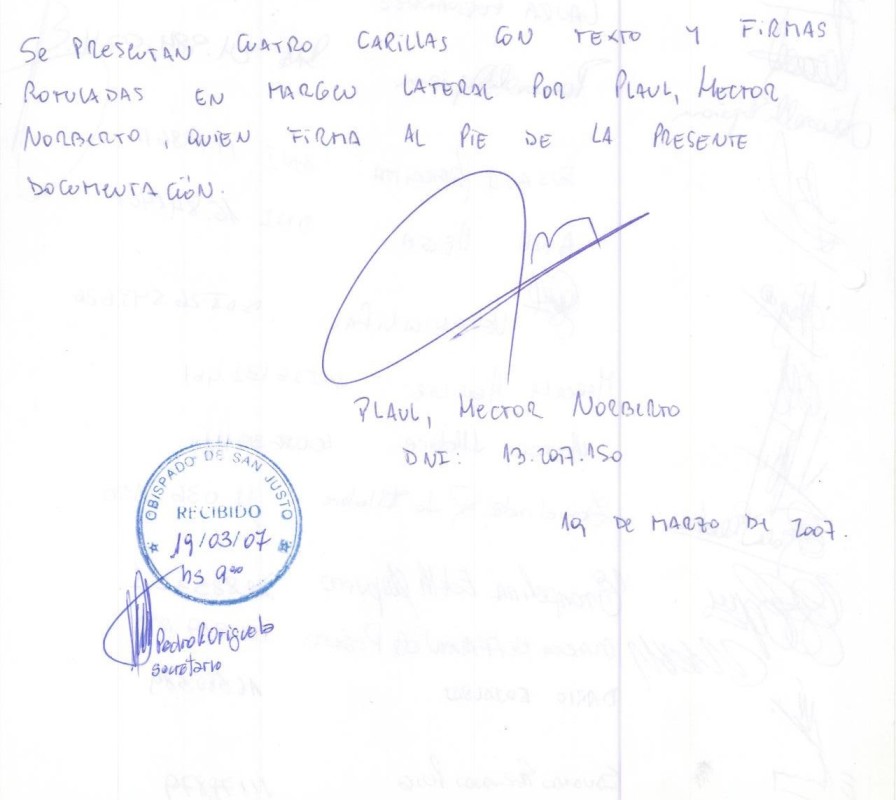 SE PRESENTAN CUATRO CARILLAS CON TEXTO Y FIRMAS
ROTULADAS EN MARGEN LATERAL POR PLAUL, HECTOR
NORBERTO, QUIEN FIRMA AL PIE DE LA PRESENTE
DOCUMENTACIÓN.
PLAUL, HECTOR NORBERTO
DNI: 13.207.150
19 DE MARZO DE 2007.
OBISPADO DE SAN JUSTO
RECIBIDO
19/03/07
hs 9⁰⁰
Pedro R Origuela
Secretario